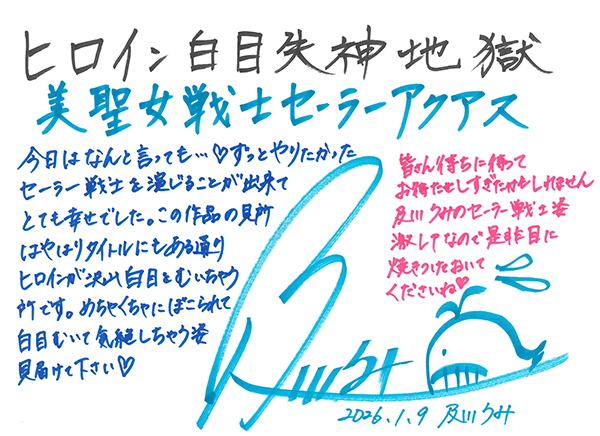 ヒロイン白目失神地獄
美聖女戦士セーラーアクアス
今日はなんと言っても…♡ずっとやりたかった
セーラー戦士を演じることが出来て
とても幸せでした。この作品の見所
はやはりタイトルにもある通り
ヒロインが沢山白目をむいちゃう
所です。めちゃくちゃにぼこられて
白目むいて気絶しちゃう姿
見届けて下さい♡
皆さん待ちに待って
お待たせしすぎたかもしれません
及川うみのセーラー戦士姿
激レアなので是非目に
焼きつけておいて
くださいね♡
及川うみ
2026.1.9 及川うみ